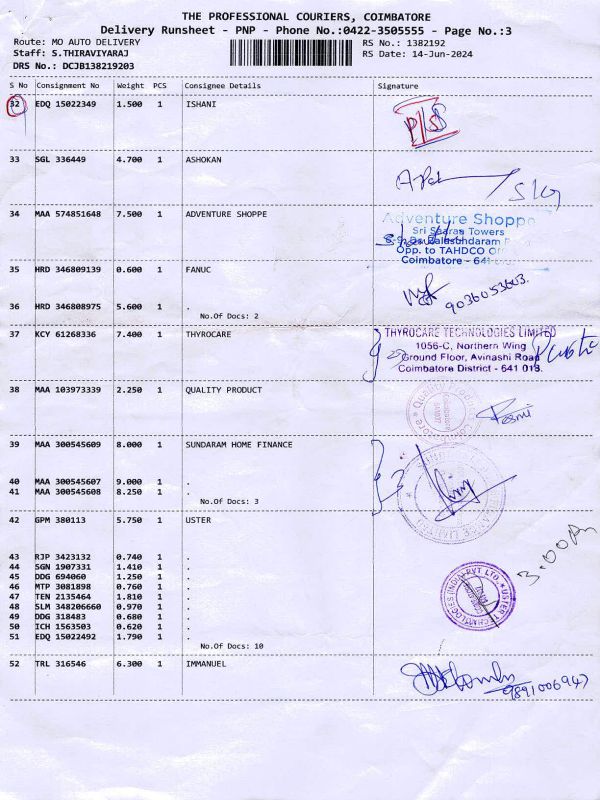 THE PROFESSIONAL COURIERS, COIMBATORE
Delivery Runsheet - PNP - Phone No.:0422-3505555 - Page No.:3
Route: MO AUTO DELIVERY RS No.: 1382192
Staff: S.THIRAVIYARAJ RS Date: 14-Jun-2024
DRS No.: DCJB138219203
S No Consignment No Weight PCS Consignee Details Signature
32 EDQ 15022349 1.500 1 ISHANI
33 SGL 336449 4.700 1 ASHOKAN
34 MAA 574851648 7.500 1 ADVENTURE SHOPPE
Adventure Shoppe
Sri Saaras Towers
Opp. to TAHDCO
Coimbatore - 641
35 HRD 346809139 0.600 1 FANUC
9036053603.
36 HRD 346808975 5.600 1 .
No.Of Docs: 2
37 KCY 61268336 7.400 1 THYROCARE
THYROCARE TECHNOLOGIES LIMITED
1056-C, Northern Wing
Ground Floor, Avinashi Road
Coimbatore District - 641 018.
38 MAA 103973339 2.250 1 QUALITY PRODUCT
39 MAA 300545609 8.000 1 SUNDARAM HOME FINANCE
40 MAA 300545607 9.000 1 .
41 MAA 300545608 8.250 1 .
No.Of Docs: 3
42 GPM 380113 5.750 1 USTER
3.00
43 RJP 3423132 0.740 1 .
44 SGN 1907331 1.410 1 .
45 DDG 694060 1.250 1 .
46 MTP 3081898 0.760 1 .
47 TEN 2135464 1.810 1 .
48 SLM 348206660 0.970 1 .
49 DDG 318483 0.680 1 .
50 ICH 1563503 0.620 1 .
51 EDQ 15022492 1.790 1 .
USTER TECHNOLOGIES (INDIA) PVT LTD.
No.Of Docs: 10
52 TRL 316546 6.300 1 IMMANUEL
9891006947